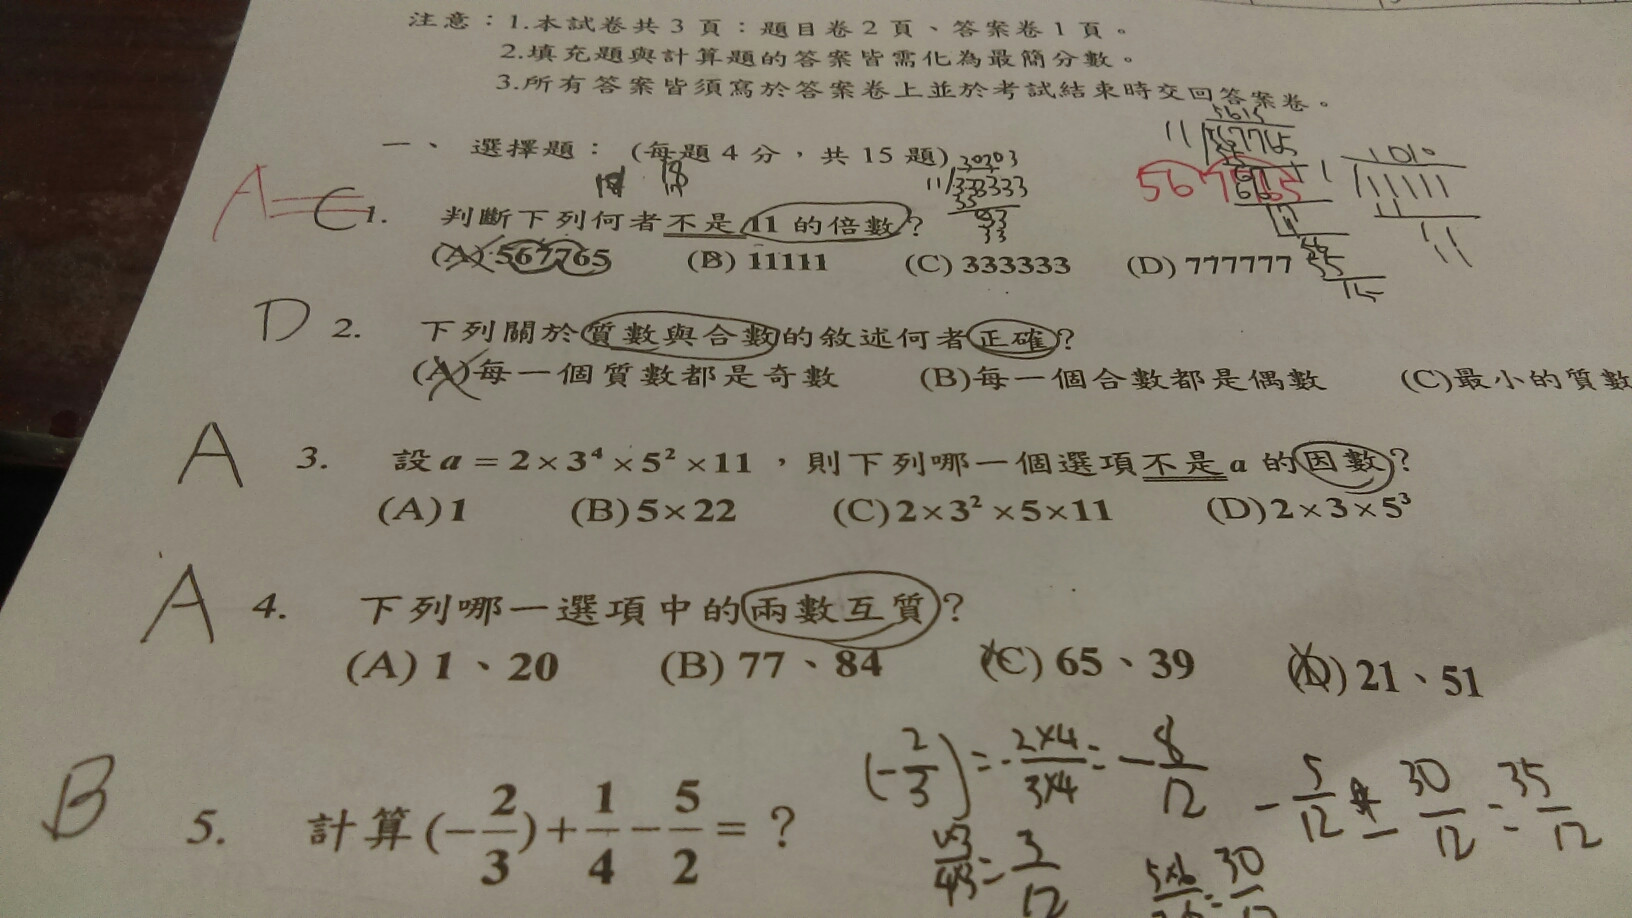 注意：1.本試卷共 3 頁：題目卷 2 頁、答案卷 1 頁。
2.填充題與計算題的答案皆需化為最簡分數。
3.所有答案皆須寫於答案卷上並於考試結束時交回答案卷。
一、 選擇題： (每題 4 分，共 15 題)
1. 判斷下列何者不是 11 的倍數？
(A) 567765 (B) 11111 (C) 333333 (D) 777777
567765
D 2. 下列關於質數與合數的敘述何者正確？
(A)每一個質數都是奇數 (B)每一個合數都是偶數 (C)最小的質數
A 3. 設 a = 2×3⁴×5²×11 ，則下列哪一個選項不是 a 的因數？
(A)1 (B)5×22 (C)2×3²×5×11 (D)2×3×5³
A 4. 下列哪一選項中的兩數互質？
(A) 1、20 (B) 77、84 (C) 65、39 (D) 21、51
B 5. 計算(−2/3)+1/4−5/2= ？
(-2/3)=-2×4/3×4=-8/12